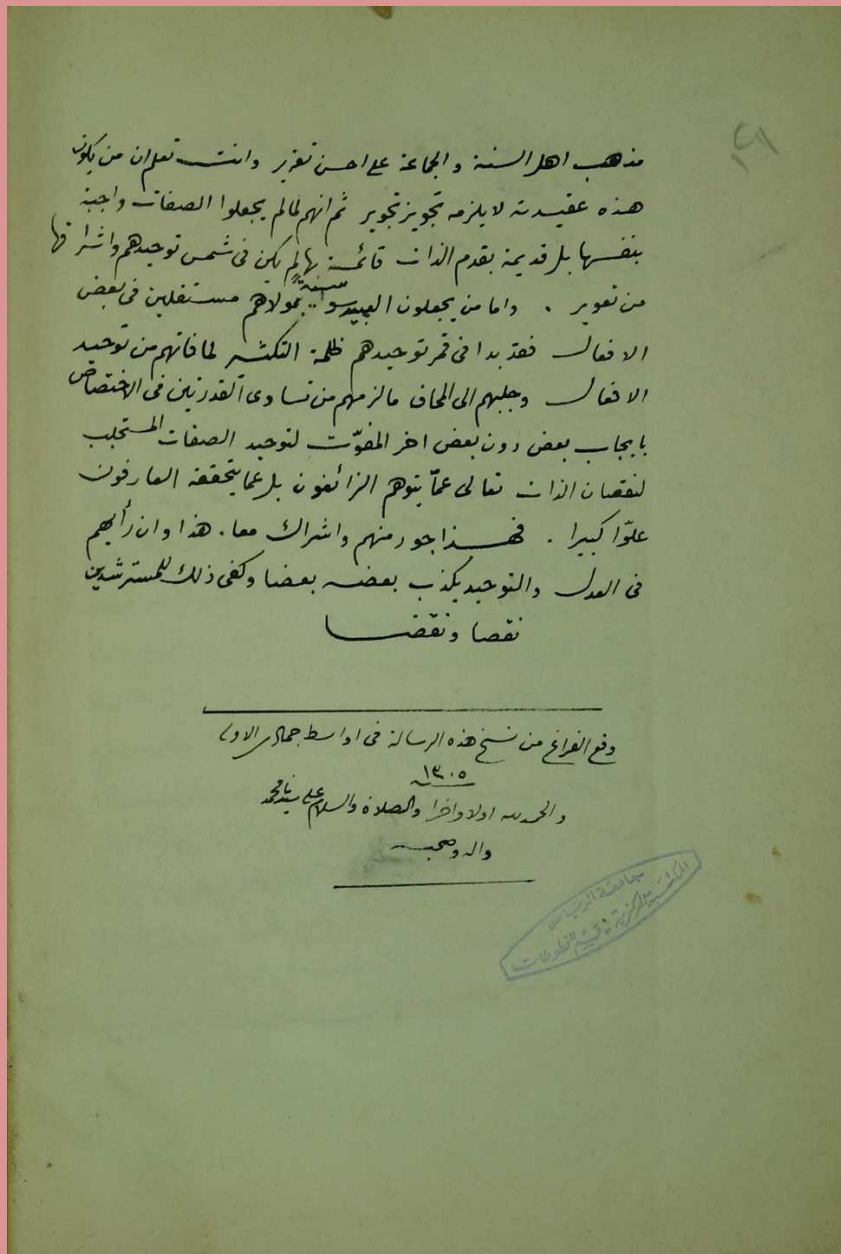 ٢١
مذهب اهل السنة والجماعة على احسن تقرير وانت تعلم ان من يكون
هذه عقيدته لا يلزمه تجويز تجوير ثم انهم لما لم يجعلوا الصفات واجبة
بنفسها بل قديمة بقدم الذات قائمة بها لم يكن فى شمس توحيدهم واشراقها
من تعوير . واما من يجعلون العبيد بمولاهم مستقلين فى بعض
الافعال فقد بدا فى قمر توحيدهم ظلمة التكثر لما فاتهم من توحيد
الافعال وجلبهم الى المحاق ما لزمهم من تساوى القدرتين فى الاختصاص
بايجاب بعض دون بعض اخر المفوّت لتوحيد الصفات المستجلب
لنقصان الذات تعالى عمّا يتوهم الزائغون بل عما يتحققه العارفون
علوّا كبيرا . فهذا جور منهم واشراك معا . هذا وان رأيهم
فى العدل والتوحيد يكذب بعضه بعضا وكفى ذلك للمسترشدين
نقصا ونقضا
وقع الفراغ من نسخ هذه الرسالة فى اواسط جمادى الاولى
١٣٠٥
والحمد لله اولا واخرا والصلاة والسلام على سيدنا محمد
واله وصحبه
جامعة الرياض
المكتبة المركزية قسم المخطوطات